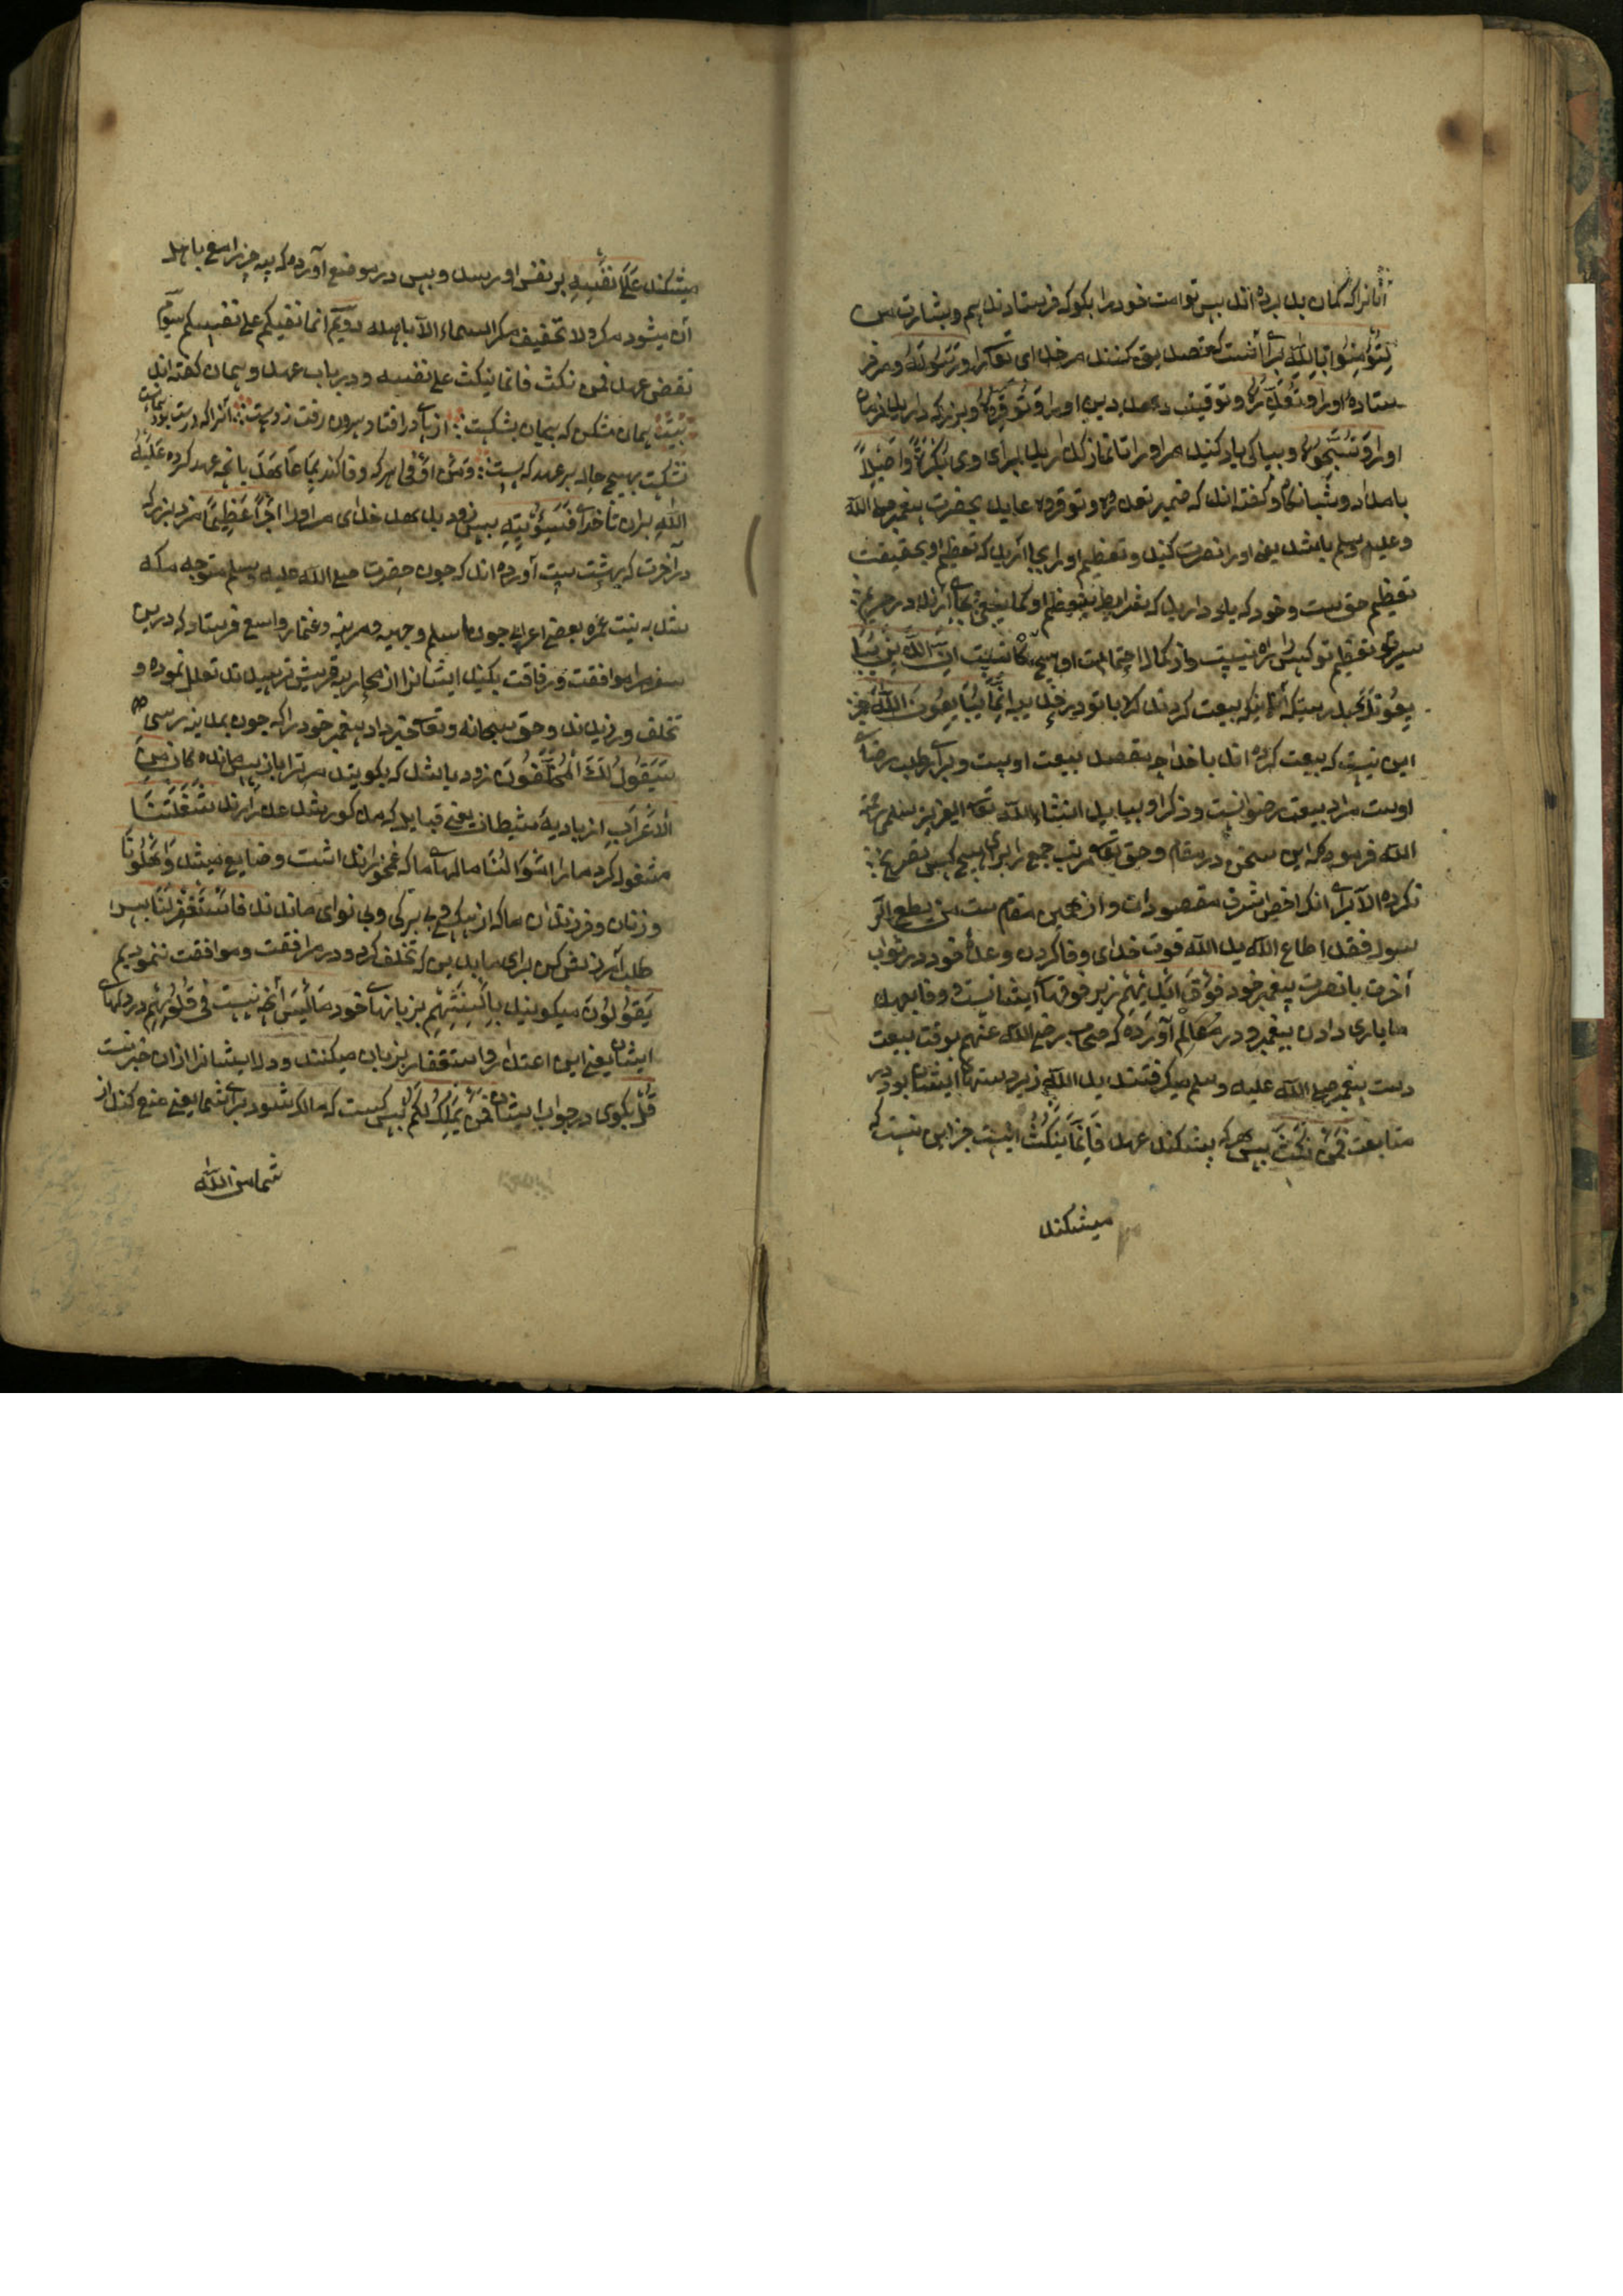 آنانرا که کمان بد برده اند پس تو امت خود را بکو که فرستادند بیم و بشارت من
لِتُؤْمِنُوا بِاللّٰهِ برای آنست که تصدیق کنند مر خدای تعالی را وَرَسُولِهِ و مر فر
ستاده او را وَتُعَزِّرُوهُ و توقیت دهید دین او را وَتُوَقِّرُوهُ و بزرک دارید فرمان
او را وَتُسَبِّحُوهُ و بپاکی یاد کنید مر او را تا نماز کزارید برای وی بُكْرَةً وَأَصِيلاً
بامداد و شبانکاه و کفته اند که ضمیر تعزروه و توقروه عاید بحضرت پیغمبر صلی اللّٰه
و علیه وسلم باشد یعنی او را نصرت کنید و تعظیم او را بجا آرید که تعظیم او بحقیقت
تعظیم حق ست و خود که یابد دارید که بشرایط تعظیم او کما ینبغی بجای آرند در حریم
سیر تعظیم تو کس را راه نیست و از کمال احتمالت او هیچ کاه نیست إِنَّ الَّذِينَ يُبَا
يِعُونَكَ بدرستیکه آنانیکه بیعت کردند با تو در حدیبیه إِنَّمَا يُبَايِعُونَ اللّٰهَ جز
این نیست که بیعت کرده اند با خدا چه مقصد بیعت اوست و برای طلب رضای
اوست مراد بیعت رضوانست و ذکر او بیاید انشاء اللّٰه تعالی العزیز سلمی رحمة
اللّٰه فرمود که این سخن در مقام و حق تعالی مرتبه جمع را برای هیچ کس تصریح
نکرده الا برای آنکه اخص اشرف مقصودات و از همین مقام ست من یطع الر
سول فقد اطاع اللّٰه ید اللّٰه قوت خدای وفا کردن وعدهٔ خود در ثواب
آخرت یا نصرت پیغمبر خود فَوْقَ أَيْدِيهِمْ زبر قوتهای ایشانست و وفا بعهد
ما یاری دادن پیغمبر و در معالم آورده که صحابه رضی اللّٰه عنهم بوقت بیعت
دست پیغمبر صلی اللّٰه علیه وسلم میکرفتند ید اللّٰه زبر دستهای ایشان بود در
متابعت فَمَنْ نَكَثَ پس هرکه بشکند عهد فَإِنَّمَا يَنْكُثُ اینست جز این نیست که
میشکند
میشکند عَلَىٰ نَفْسِهِ بر نفس او رسد و بس در موضع آورده که سه چیز راجع باهل
آن میشود مکر ولا یحیق مکر السیئ الا باهله دویم انما بغیکم علی انفسکم سیوم
نقض عهد فمن نکث فانما ینکث علی نفسه و در باب عهد و پیمان کفته اند
بیت پیمان مشکن که هر که پیمان بشکست از پای در افتاد و برون رفت ز دست آنرا که درست بود پیمانش
نشکست بهیچ حال هر عهد که بست وَمَنْ أَوْفَىٰ و هر که وفا کند بِمَا عَاهَدَ بانچه عهد کرده عَلَيْهُ
اللّٰهَ بران با خدای فَسَيُؤْتِيهِ پس زود بدهد خدای مر او را أَجْرًا عَظِيمًا مزد بزرک
در آخرت که بهشت ست آورده اند که چون حضرت صلی اللّٰه علیه وسلم متوجه مکه
شد به نیت عمره بعضی اعراب چون اسلم و جهینه و مزینه و غفار و اسع فرستاد که درین
سفر مرا موافقت و مرفاقت بکنید ایشانرا از محاربه قریش ترسیدند تعلل نموده و
تخلف ورزیدند و حق سبحانه و تعالی خبر داد پیغمبر خود را که چون بمدینه رسی
سَيَقُولُ لَكَ الْمُخَلَّفُونَ زود باشد که بکویند مر ترا باز پس مانده کان مِنَ
الْأَعْرَابِ از بادیه نشینان یعنی قبایل که مذکور شد عذر آرند شَغَلَتْنَا
مشغول کرد ما را أَمْوَالُنَا مالهای ما که غمخور آن نداشت و ضایع میشد وَأَهْلُونَا
و زنان و فرزندان ما که از بیکسی بی برکی و بی نوای ماندند فَاسْتَغْفِرْ لَنَا پس
طلب آمرزش کن برای ما بدین که تخلف کرده و در مرافقت و موافقت ننمودیم
يَقُولُونَ میکویند بِأَلْسِنَتِهِمْ بزبانهای خود مَا لَيْسَ آنچه نیست فِي قُلُوبِهِمْ در دلهای
ایشان یعنی این اعتذار و استغفار بزبان میکنند و دل ایشانرا ازان خبر نیست
قُلْ بکوی در جواب ایشان فَمَنْ يَمْلِكُ لَكُمْ پس کیست که مالک شود برای شما یعنی منع کند از
شما من اللّٰه